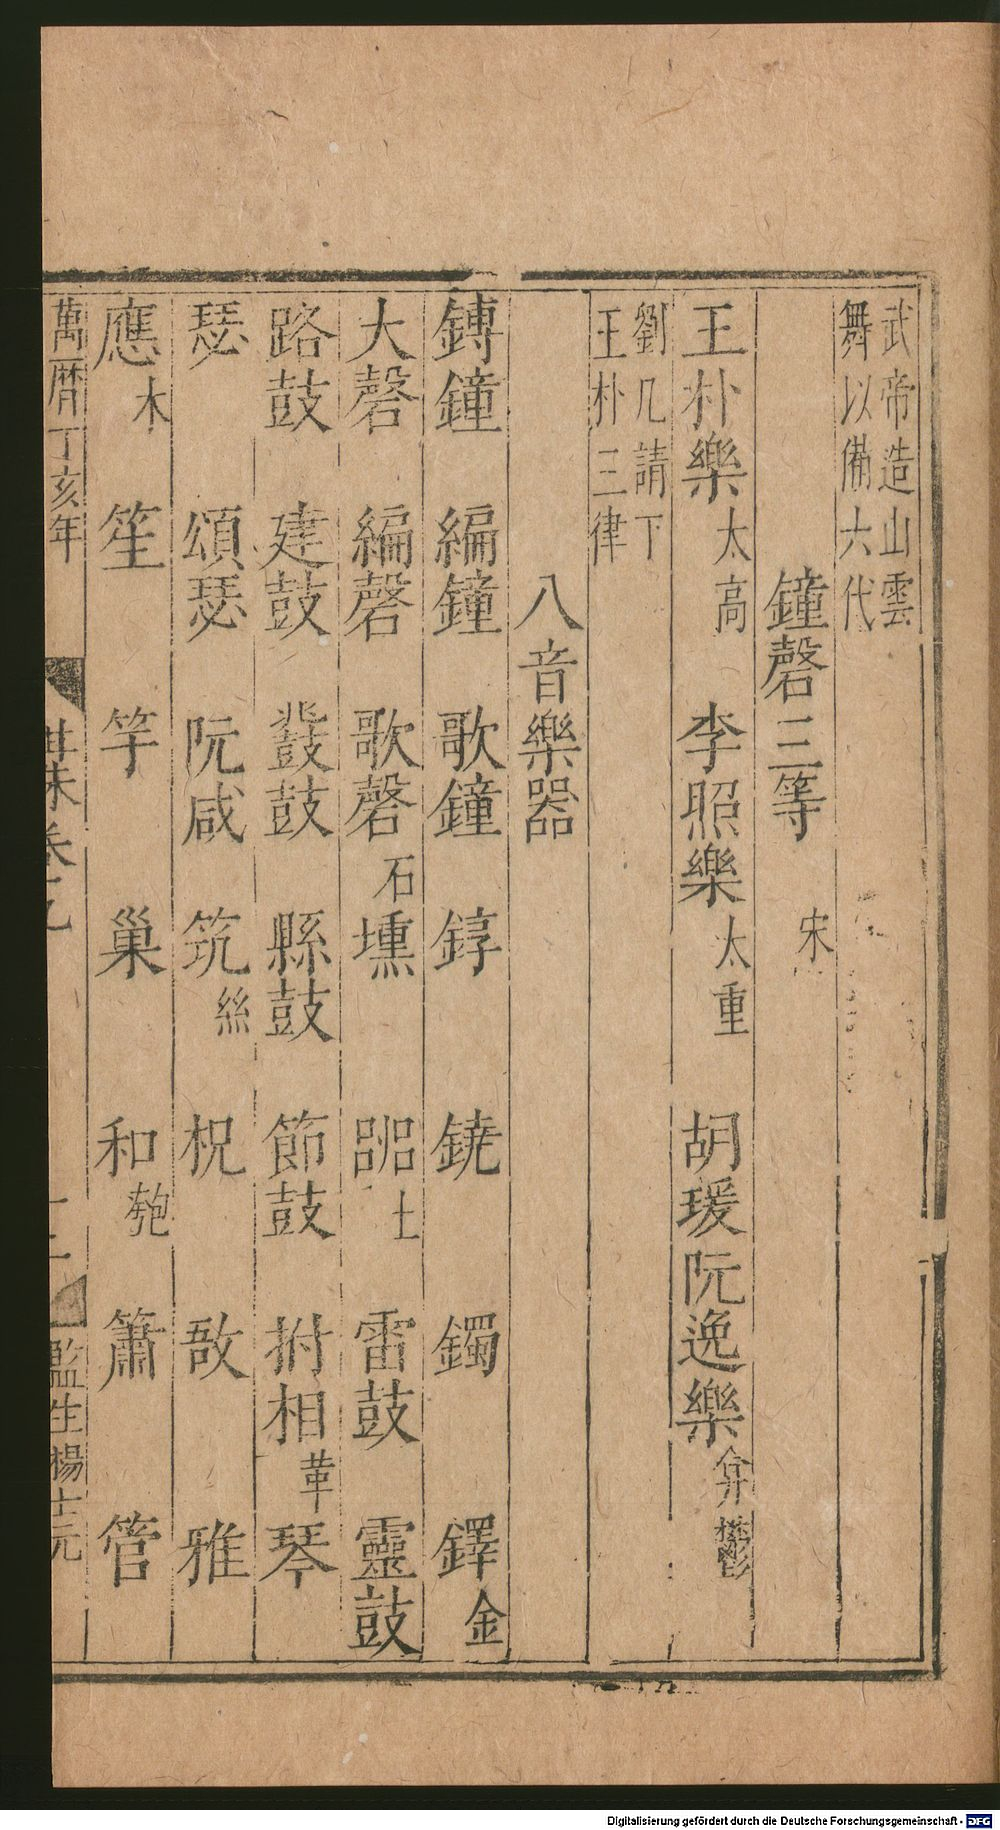 武帝造山雲
舞以備六代
鐘磬三等 宋
王朴樂 太高 李照樂 太重 胡瑗阮逸樂 弇鬱
劉几請下
王朴三律
八音樂器
鎛鐘 編鐘 歌鐘 錞 鐃 鐲 鐸 金
大磬 編磬 歌磬 石 壎 㗊 土 雷鼓 靈鼓
路鼓 建鼓 鼖鼓 縣鼓 節鼓 拊相 革 琴
瑟 頌瑟 阮咸 筑 絲 柷 敔 雅
應 木 笙 竽 巢 和 匏 簫 管
萬曆丁亥年 卷九 監生楊士元
Digitalisierung gefördert durch die Deutsche Forschungsgemeinschaft - DFG